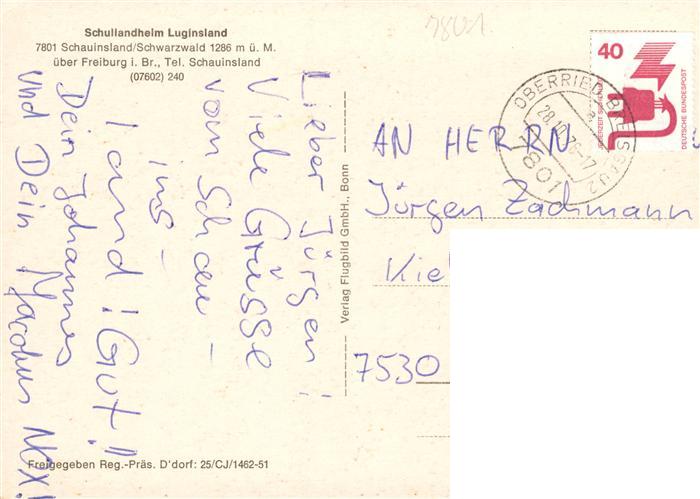 Schullandheim Luginsland
7801 Schauinsland/Schwarzwald 1286 m ü. M.
über Freiburg i. Br., Tel. Schauinsland
(07602) 240
Lieber Jürgen!
Viele Grüsse
vom Schau-
ins-
land! Gut!!
Dein Johannes
und Dein Markus
Verlag Flugbild GmbH., Bonn
Freigegeben Reg.-Präs. D'dorf: 25/CJ/1462-51
7801
40
JEDERZEIT SICHERHEIT
DEUTSCHE BUNDESPOST
OBERRIED, BREISGAU 2
7801
AN HERRN
Jürgen Zachmann
Kie
7530